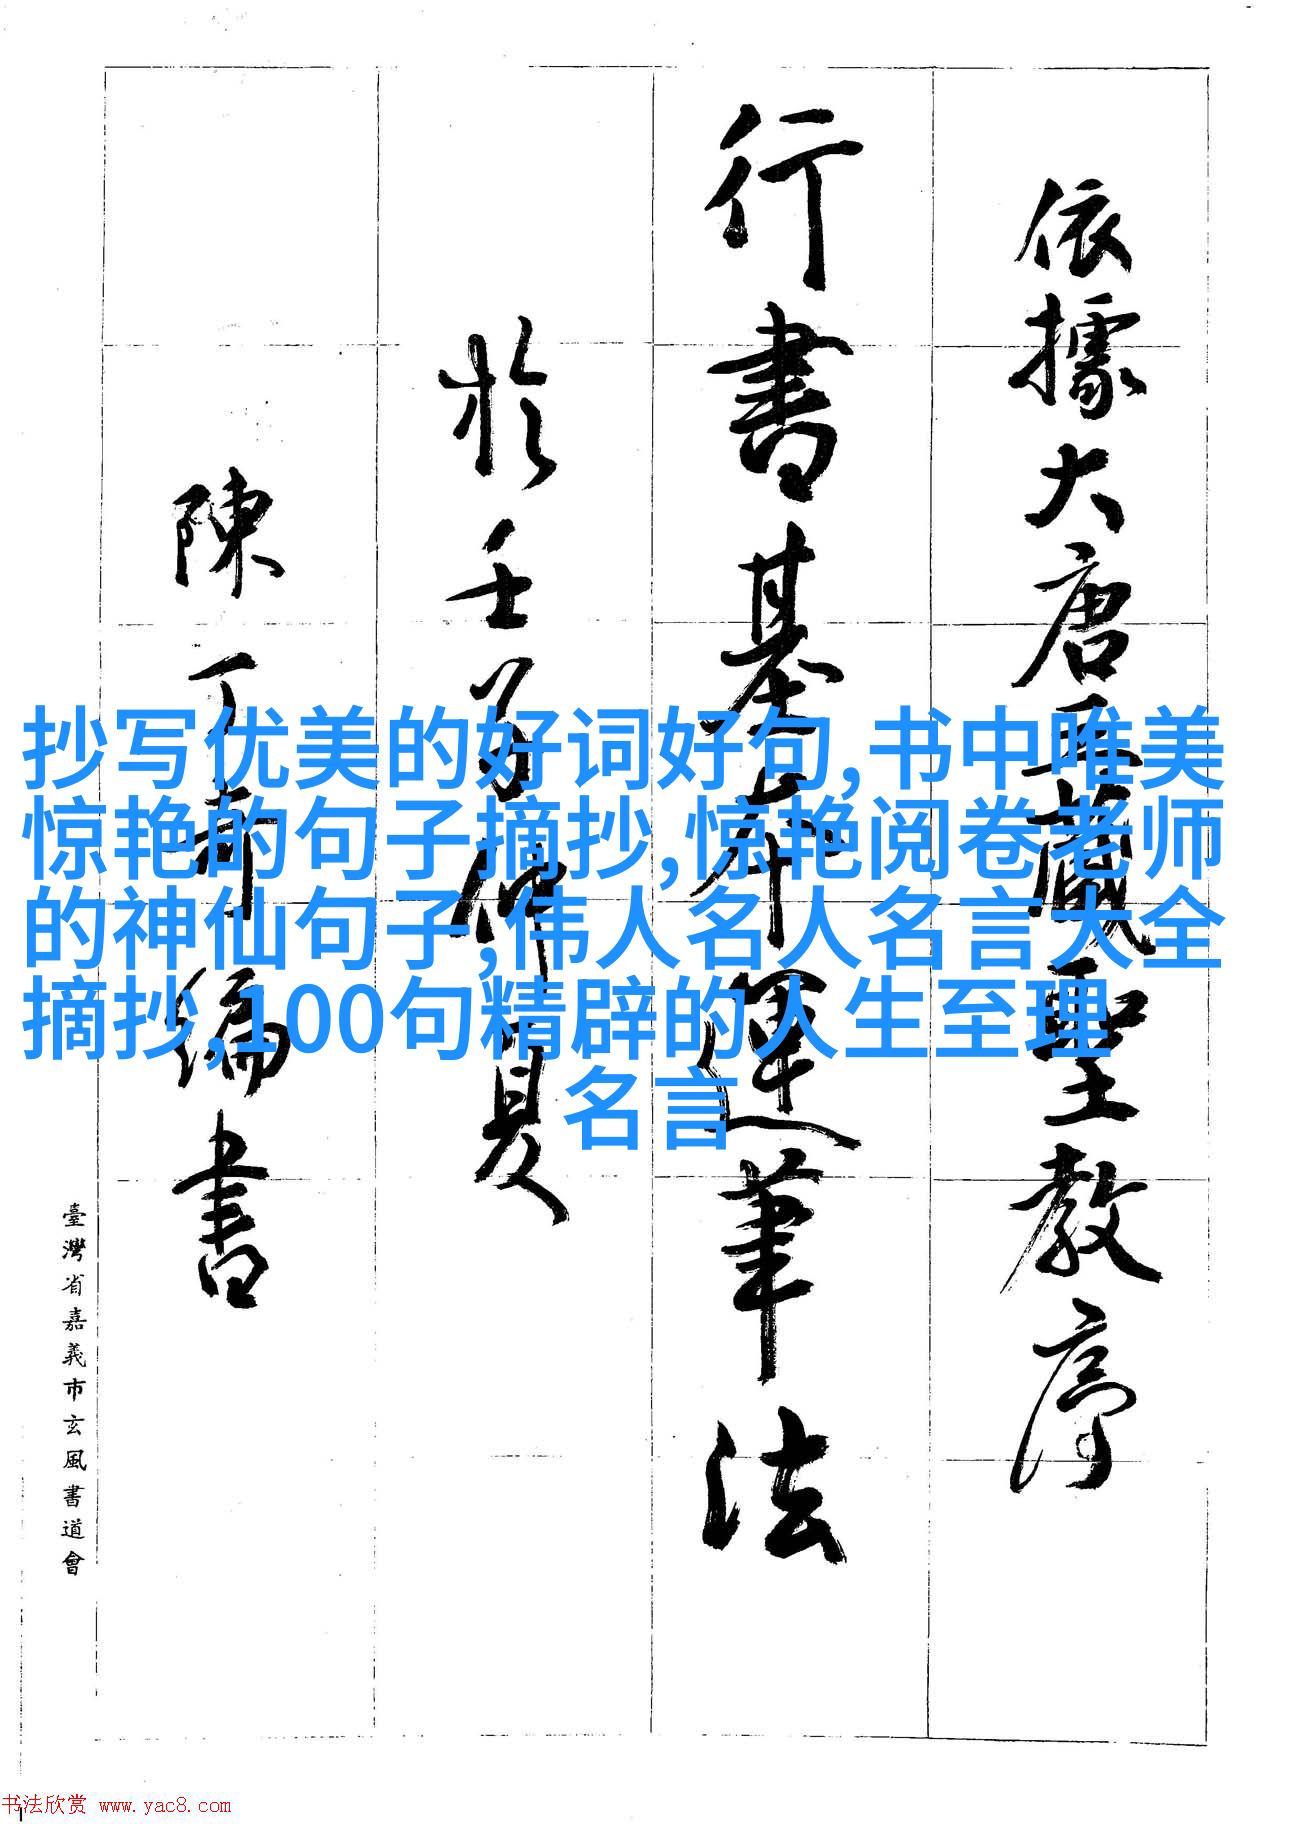 依據大唐三藏聖教序
行書基本運筆法
於壬仲夏
陳丁奇編書
臺灣省嘉義市玄風書道會
抄写优美的好词好句,书中唯美
惊艳的句子摘抄,惊艳阅卷老师
的神仙句子,伟人名人名言大全
摘抄,100句精辟的人生至理
名言
书法欣赏 www.yac8.com